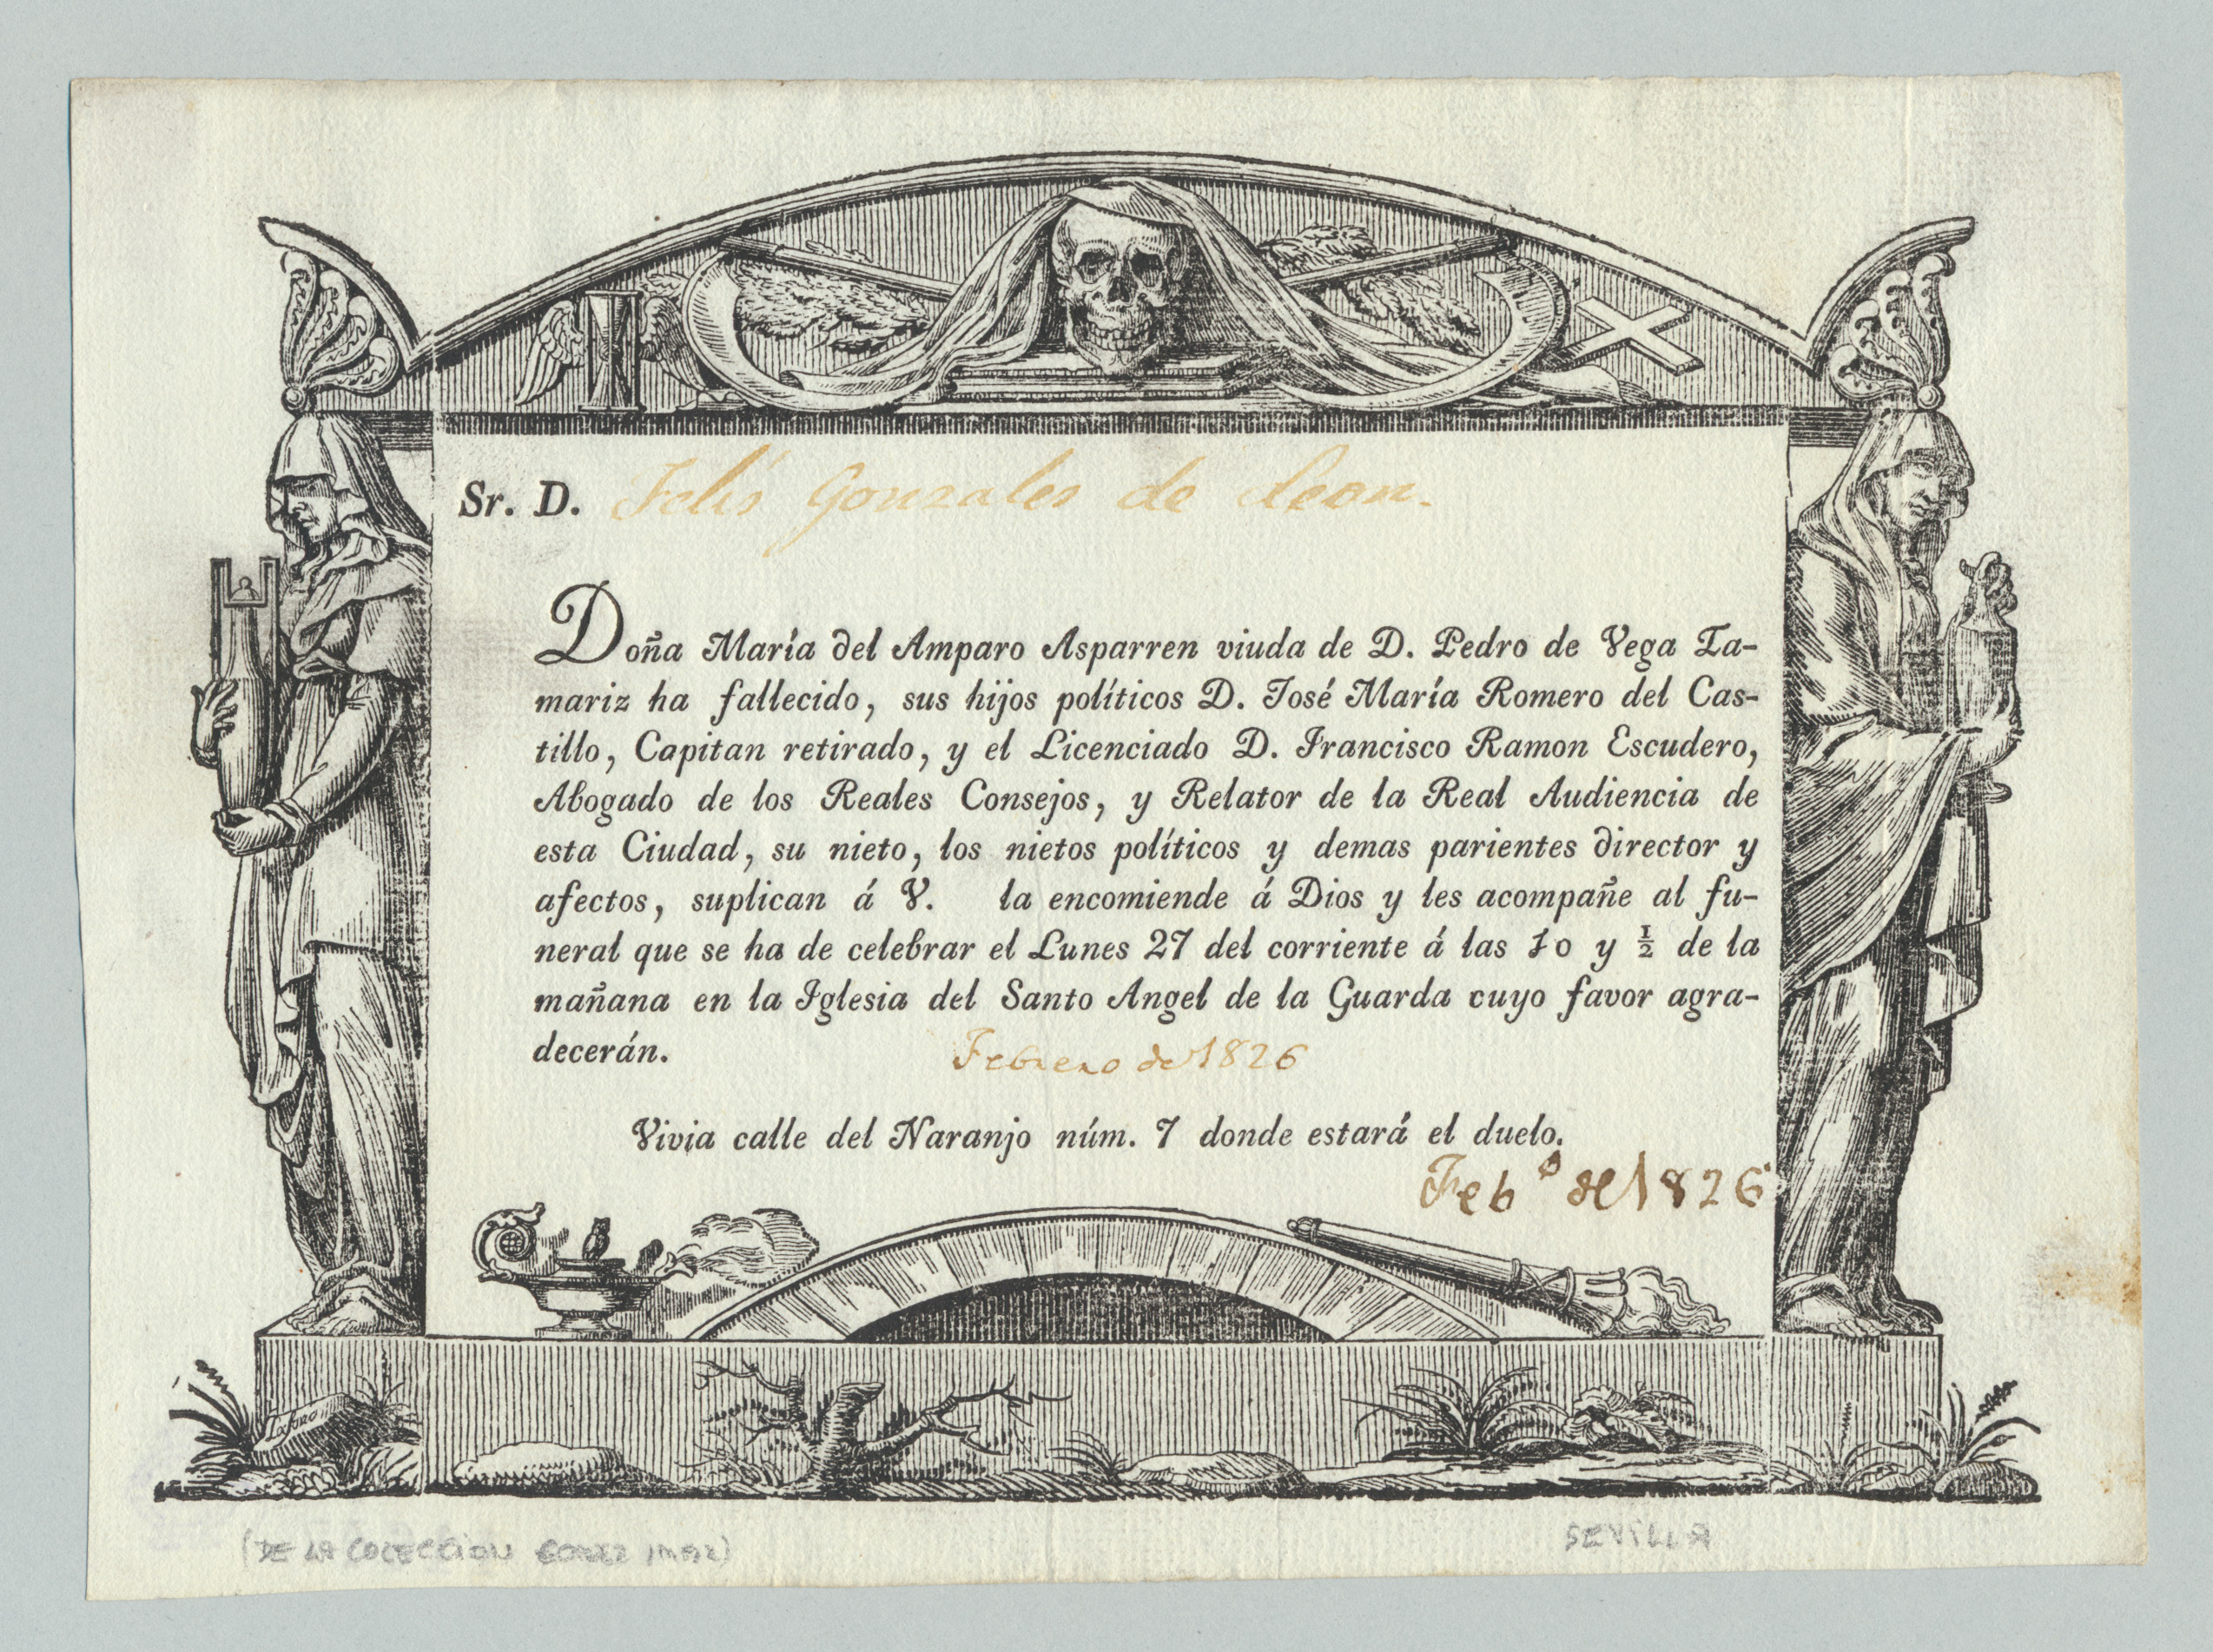 Sr. D. Felis Gonzales de Leon.
Doña María del Amparo Asparren viuda de D. Pedro de Vega Ta-
mariz ha fallecido, sus hijos políticos D. José María Romero del Cas-
tillo, Capitan retirado, y el Licenciado D. Francisco Ramon Escudero,
Abogado de los Reales Consejos, y Relator de la Real Audiencia de
esta Ciudad, su nieto, los nietos políticos y demas parientes director y
afectos, suplican á V. la encomiende á Dios y les acompañe al fu-
neral que se ha de celebrar el Lunes 27 del corriente á las 10 y ½ de la
mañana en la Iglesia del Santo Angel de la Guarda cuyo favor agra-
decerán.
Febrero de 1826
Vivia calle del Naranjo núm. 7 donde estará el duelo.
Febº de 1826
(DE LA COLECCION
SEVILLA